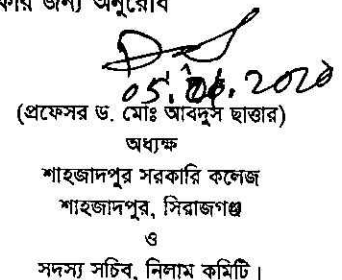 জন্য অনুরোধ
05.06.2020
(প্রফেসর ড. মোঃ আবদুস ছাত্তার)
অধ্যক্ষ
শাহজাদপুর সরকারি কলেজ
শাহজাদপুর, সিরাজগঞ্জ
ও
সদস্য সচিব, নিলাম কমিটি।